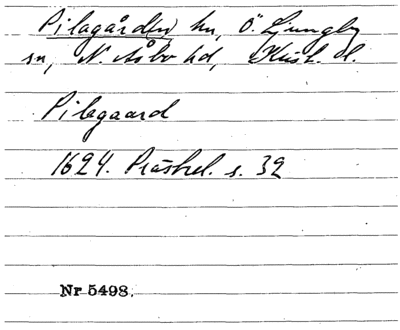 Pilagården hn, Ö. Ljungby
sn, N. Åsbo hd, Krist. l.
Pilegaard
1624. Prästrel. s. 32
Nr 5498.